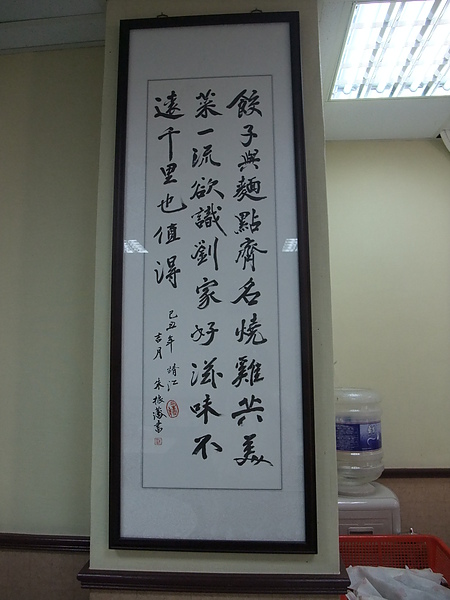 餃子與麵點齊名燒雞共美
菜一流欲識劉家好滋味不
遠千里也值得
己丑年晴江
吉月 朱振藩書